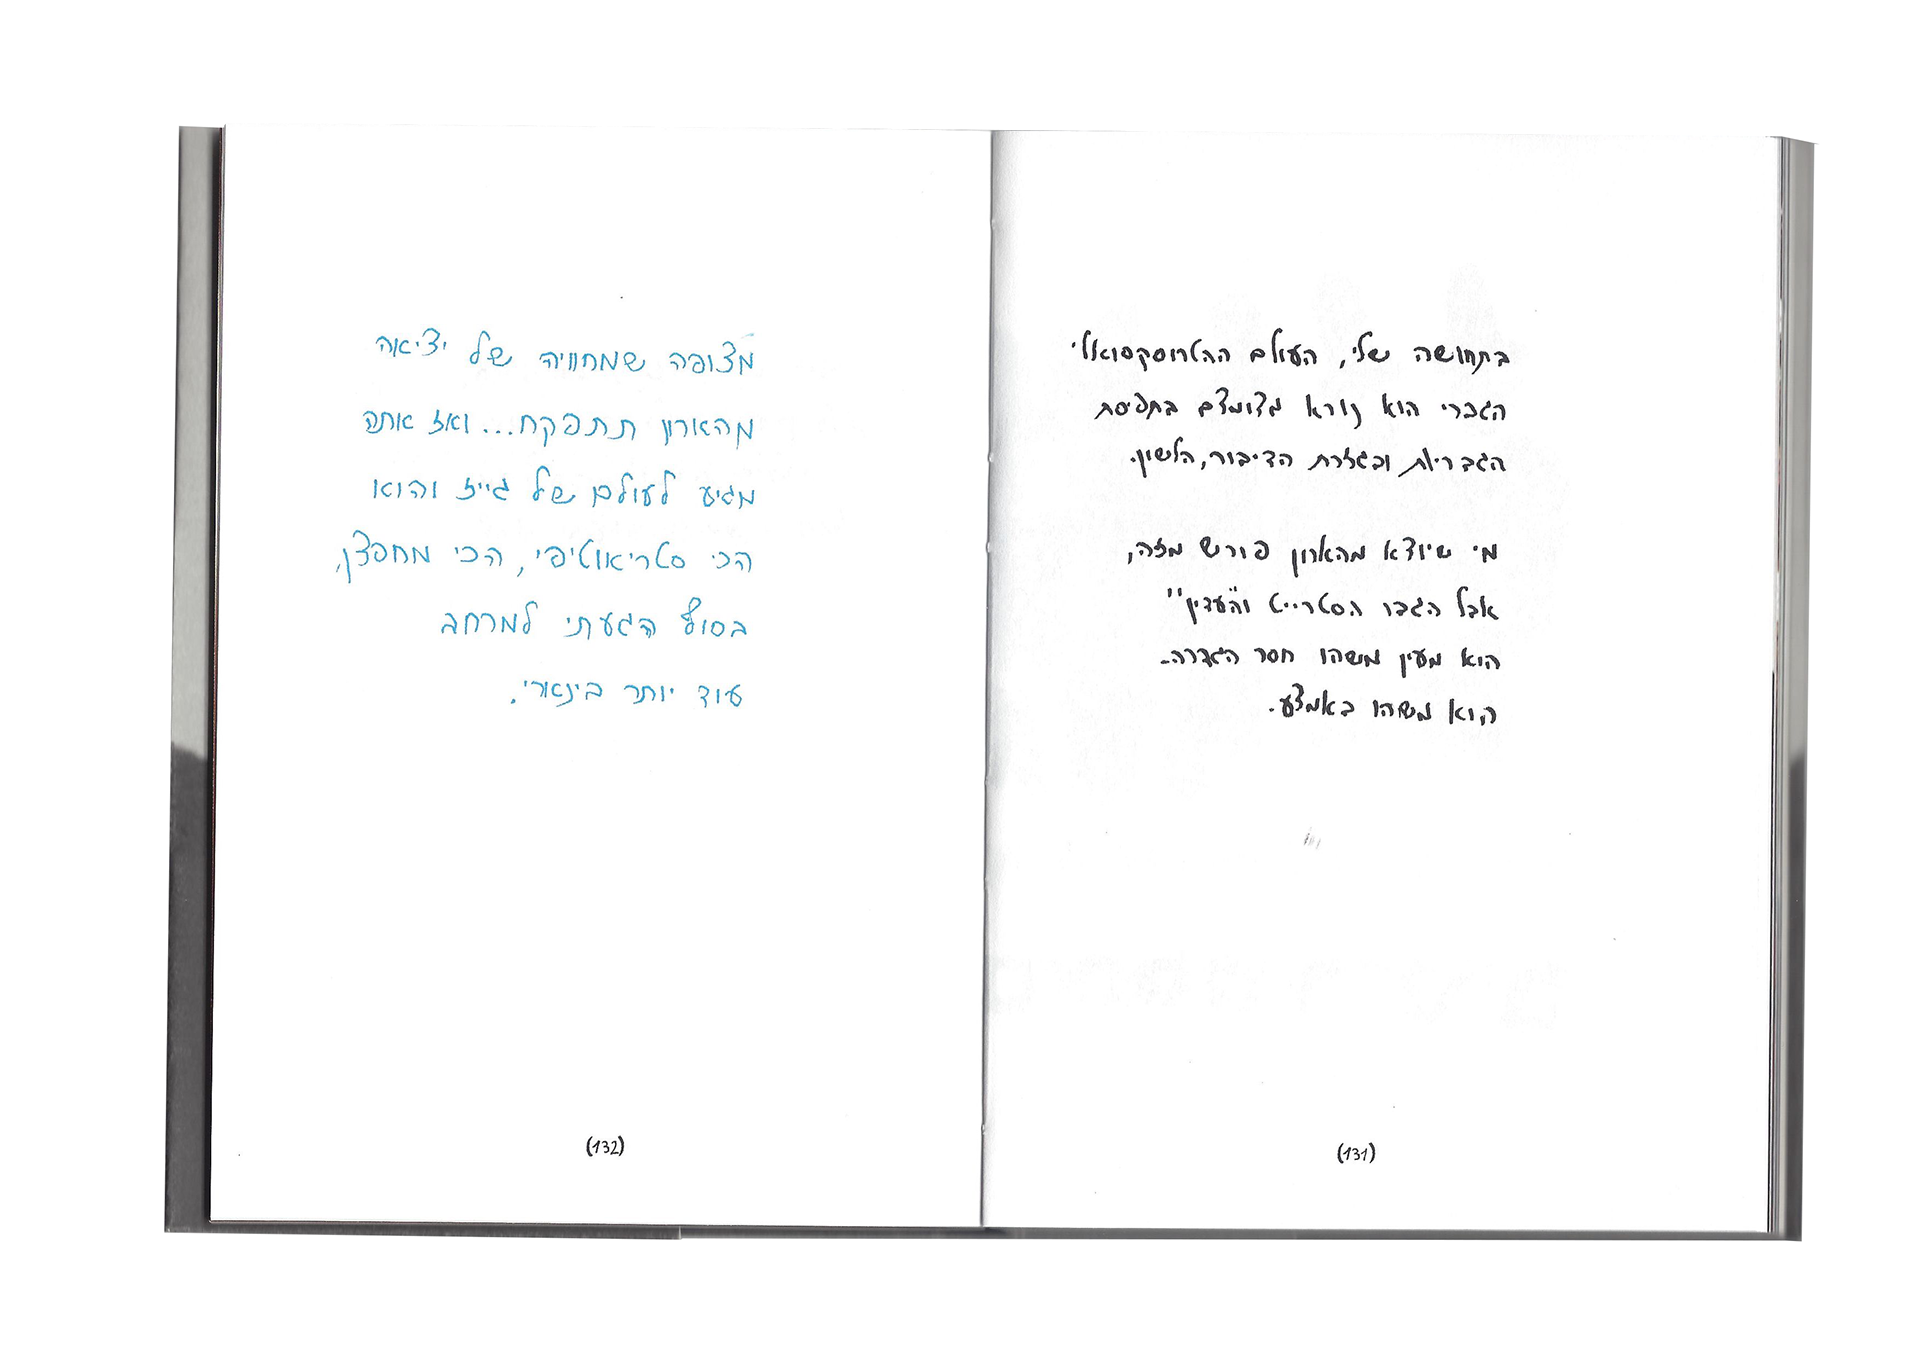 בתחושה שלי, העולם ההטרוסקסואלי
הגברי הוא נורא מצומצם בתפיסת
הגבריות ובגזרת הדיבור, הלשון.
מי שיוצא מהארון פורש מזה,
אבל הגבר הסטרייט וה"עדין"
הוא מעין משהו חסר הגדרה.
הוא משהו באמצע.
(131)
מצופה שמחוויה של יציאה
מהארון תתפקח... ואז אתה
מגיע לעולם של גייז והוא
הכי סטריאוטיפי, הכי מחפצן,
בסוף הגעתי למרחב
עוד יותר בינארי.
(132)